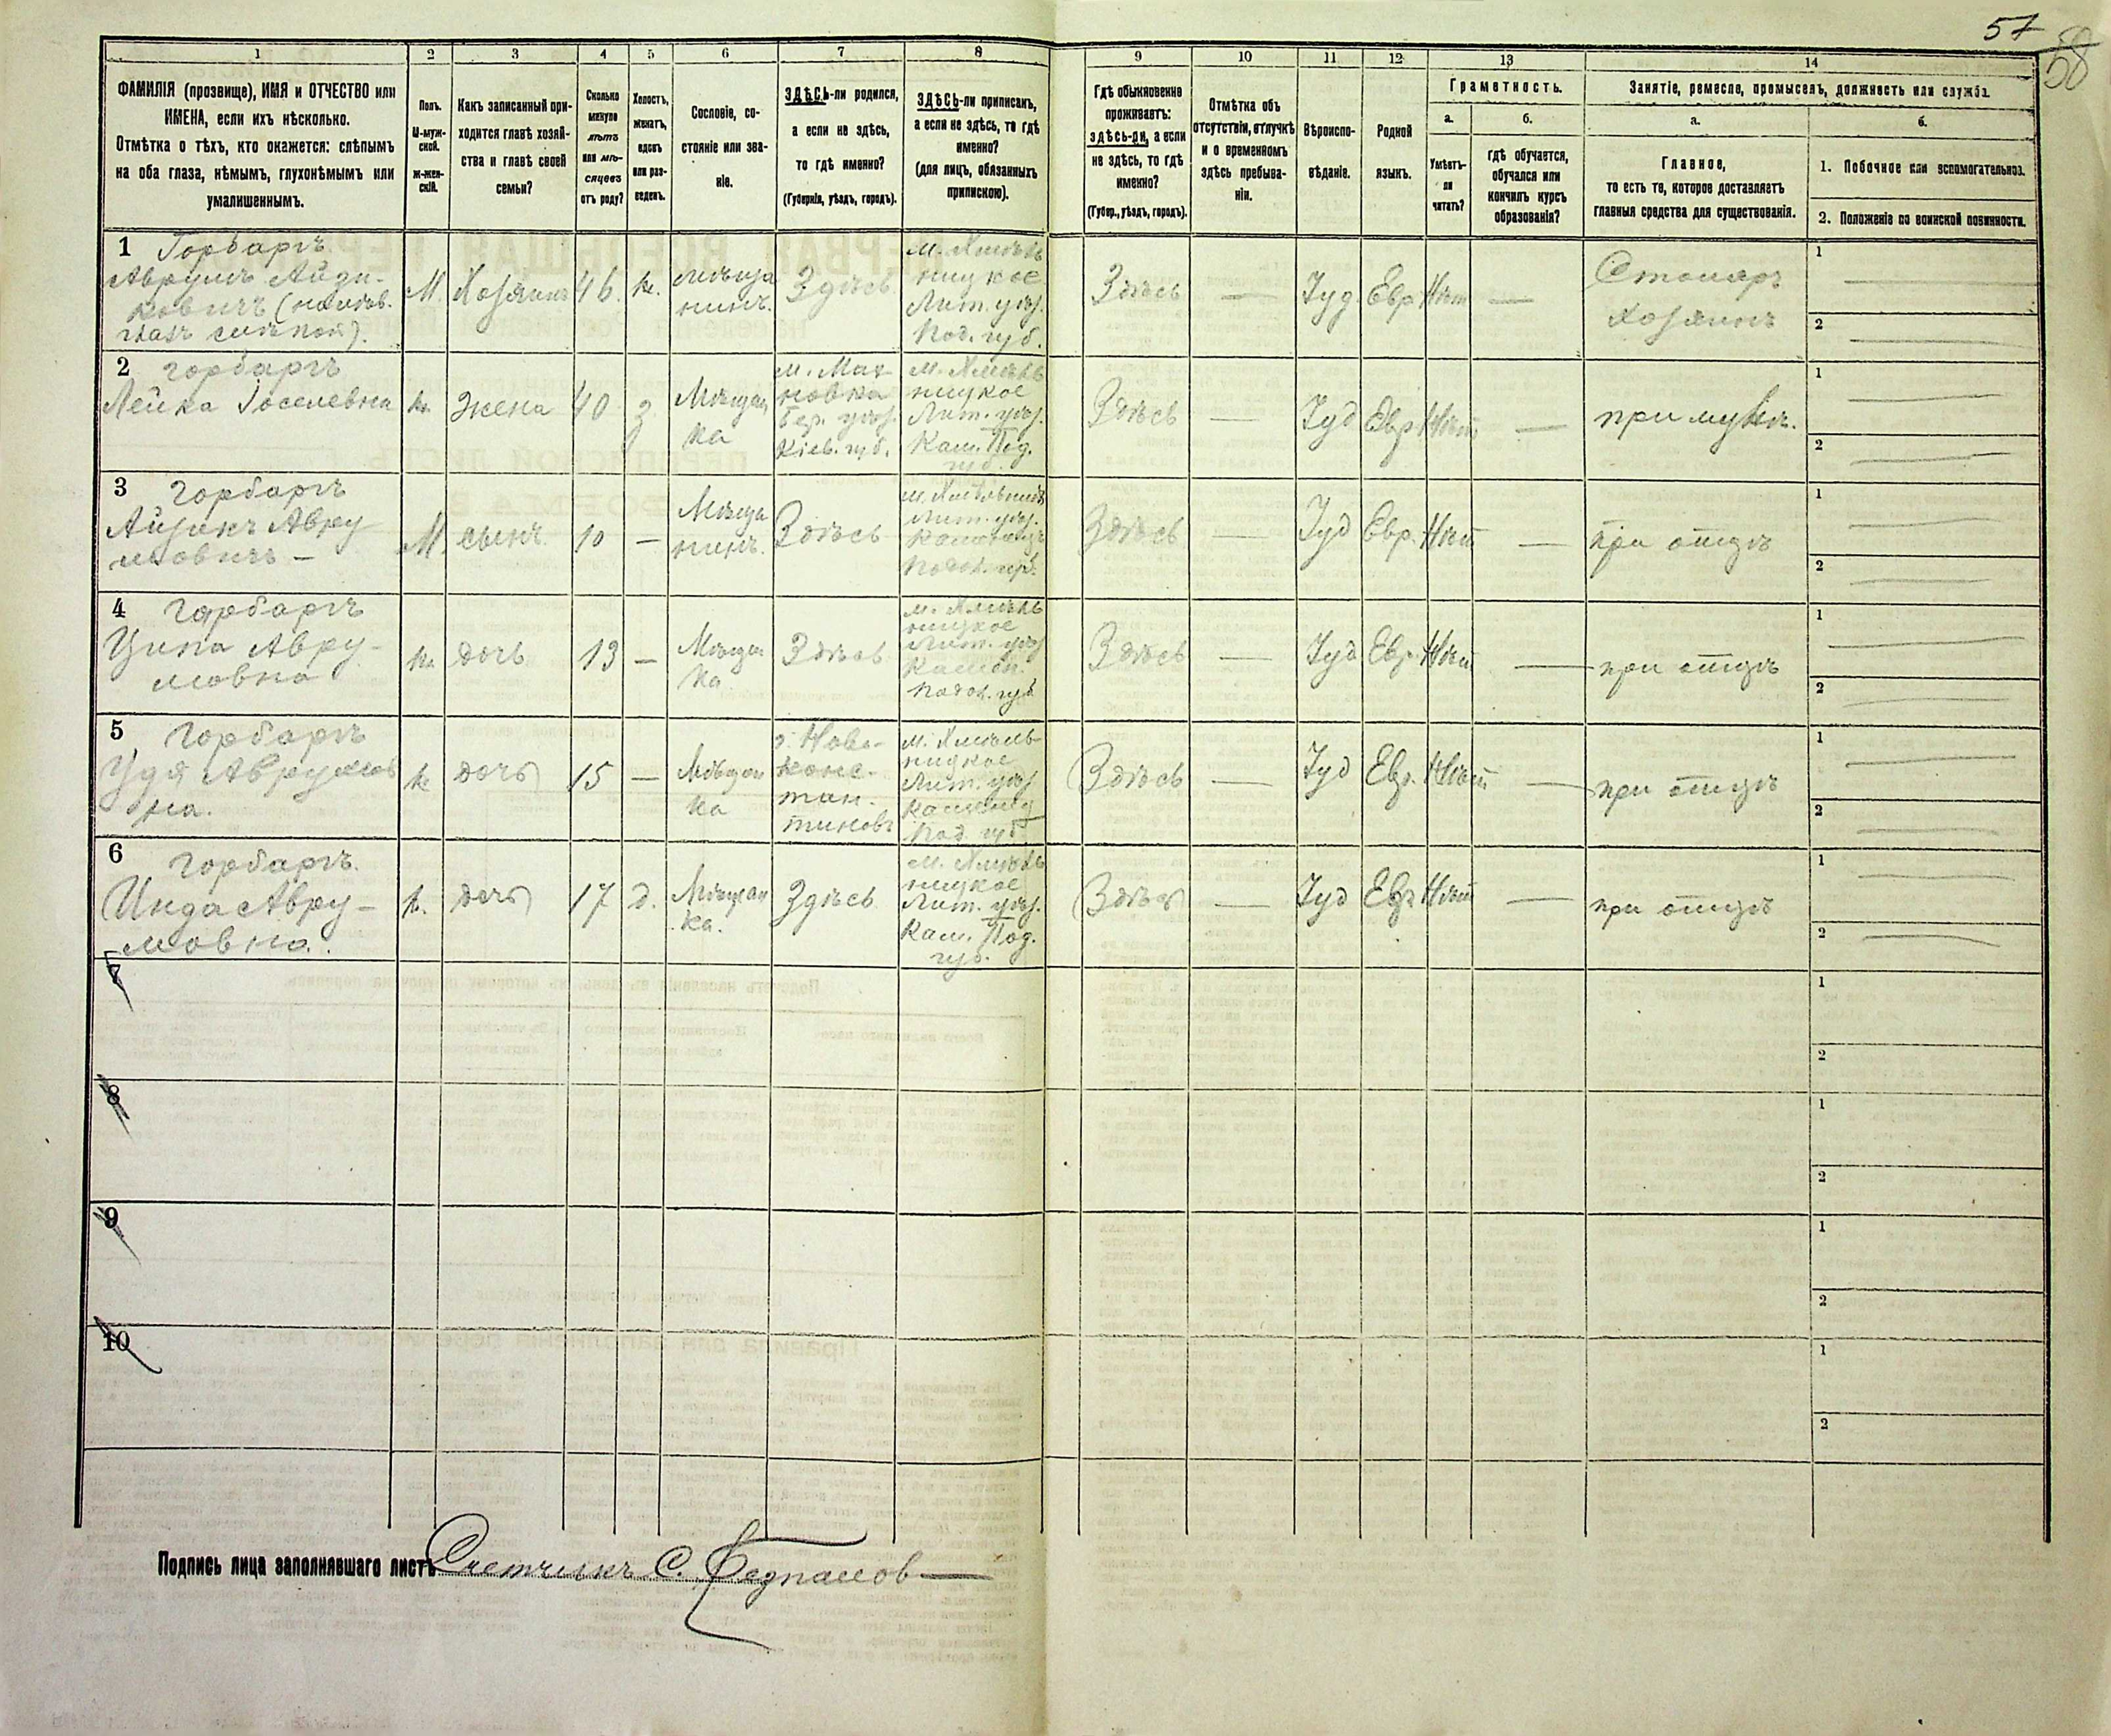 57
58
1 2 3 4 5 6 7 8 9 10 11 12 13 14
ФАМИЛІЯ (прозвище), ИМЯ и ОТЧЕСТВО или
ИМЕНА, если ихъ нѣсколько.
Отмѣтка о тѣхъ, кто окажется: слѣпымъ
на оба глаза, нѣмымъ, глухонѣмымъ или
умалишеннымъ.
Полъ.
М-муж-
ской.
Ж-жен-
скій.
Какъ записанный при-
ходится главѣ хозяй-
ства и главѣ своей
семьи?
Сколько
минуло
лѣтъ
или мѣ-
сяцевъ
отъ роду?
Холостъ,
женатъ,
вдовъ
или раз-
веденъ.
Сословіе, со-
стояніе или зва-
ніе.
ЗДѢСЬ-ли родился,
а если не здѣсь,
то гдѣ именно?
(Губернія, уѣздъ, городъ).
ЗДѢСЬ-ли приписанъ,
а если не здѣсь, то гдѣ
именно?
(для лицъ, обязанныхъ
припискою).
Гдѣ обыкновенно
проживаетъ:
здѣсь-ли, а если
не здѣсь, то гдѣ
именно?
(Губер., уѣздъ, городъ).
Отмѣтка объ
отсутствіи, отлучкѣ
и о временномъ
здѣсь пребыва-
ніи.
Вѣроиспо-
вѣданіе.
Родной
языкъ.
Грамотность.
а.
Умѣетъ-
ли
читать?
б.
гдѣ обучается,
обучался или
кончилъ курсъ
образованія?
Занятіе, ремесло, промыселъ, должность или служба.
а.
Главное,
то есть то, которое доставляетъ
главныя средства для существованія.
б.
1. Побочное или вспомогательное.
2. Положеніе по воинской повинности.
1 Горбаргъ
Аврумъ Айзи-
ковичъ
М. Хозяинъ 46. ж. мѣща
нинъ. Здѣсь
м. Хмѣль
ницкое
Лит. уѣз.
Под. губ.
Здѣсь — Іуд. Евр Нѣт — Столяръ
Хозяинъ
1
2
2 Горбаргъ
Лейка Іоселевна
ж. жена 40 з. Мѣщан
ка
м. Мах-
новка
Бер. уѣз.
Кіев. губ.
м. Хмѣль
ницкое
Лит. уѣз.
Кам. Под.
губ.
Здѣсь — Іуд Евр Нѣт — при мужѣ.
1
2
3 Горбаргъ
Айзикъ Авру
мовичъ —
М. сынъ 10 — Мѣща
нинъ. Здѣсь
Лит. уѣз.
Подол. губ.
Здѣсь — Іуд Евр. Нѣт — при отцѣ
1
2
4 Горбаргъ
Ципа Авру-
мовна
ж. дочь 13 — Мѣщан
ка Здѣсь
м. Хмѣль
ницкое
Лит. уѣз
Камен.
Подол. губ
Здѣсь — Іуд Евр. Нѣт — при отцѣ
1
2
5 Горбаргъ
Удя Аврумов
на.
ж. дочь 15 — Мѣщан
ка
г. Ново-
конс-
тан-
тиновъ
м. Хмѣль-
ницкое
Лит. уѣз
Под. губ
Здѣсь — Іуд Евр. Нѣт — при отцѣ
1
2
6 Горбаргъ.
Инда Авру-
мовна.
ж. дочь 17 д. Мѣщан
ка. Здѣсь
м. Хмѣль
ницкое
Лит. уѣз.
Кам. Под.
губ.
Здѣсь — Іуд Евр Нѣт — при отцѣ
1
2
7
1
2
8
1
2
9
1
2
10
1
2
Подпись лица заполнявшаго листъ Счетчикъ С.